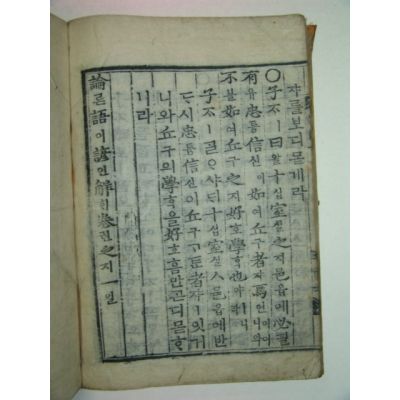 쟈를보디몯게라
○子ᄌᆞㅣ曰왈十십室실之지邑읍애必필
有유忠튱信신이如여丘구者쟈焉언이어니와
不블如여丘구之지好호學ᄒᆞᆨ也야ㅣ니라
子ᄌᆞㅣᄀᆞᆯᄋᆞ샤ᄃᆡ十십室실ㅅ邑읍애반
ᄃᆞ시忠튱信신이丘구ᄀᆞᄐᆞᆫ者쟈ㅣ잇거
니와丘구의學ᄒᆞᆨ을好호홈만ᄀᆞᆮ디몯ᄒᆞ
니라
論론語어諺언解ᄒᆡ卷권之지一일